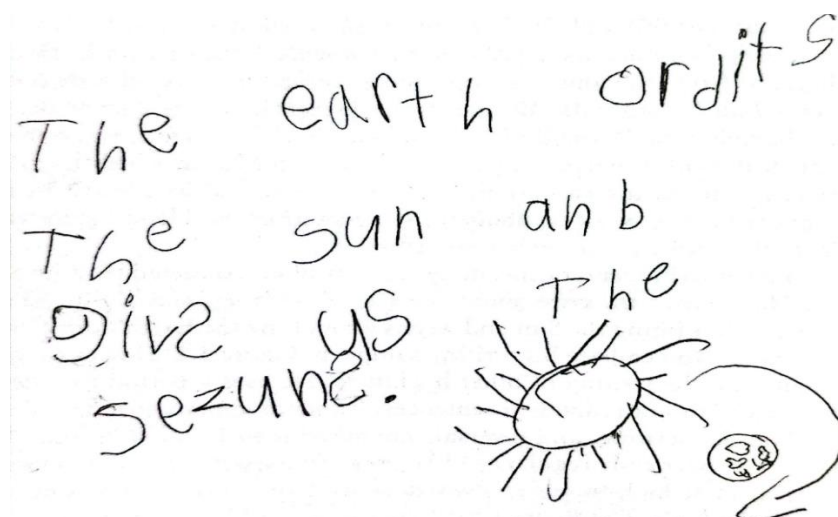 The earth ordits
The sun anb
Givs us The
sezuns.